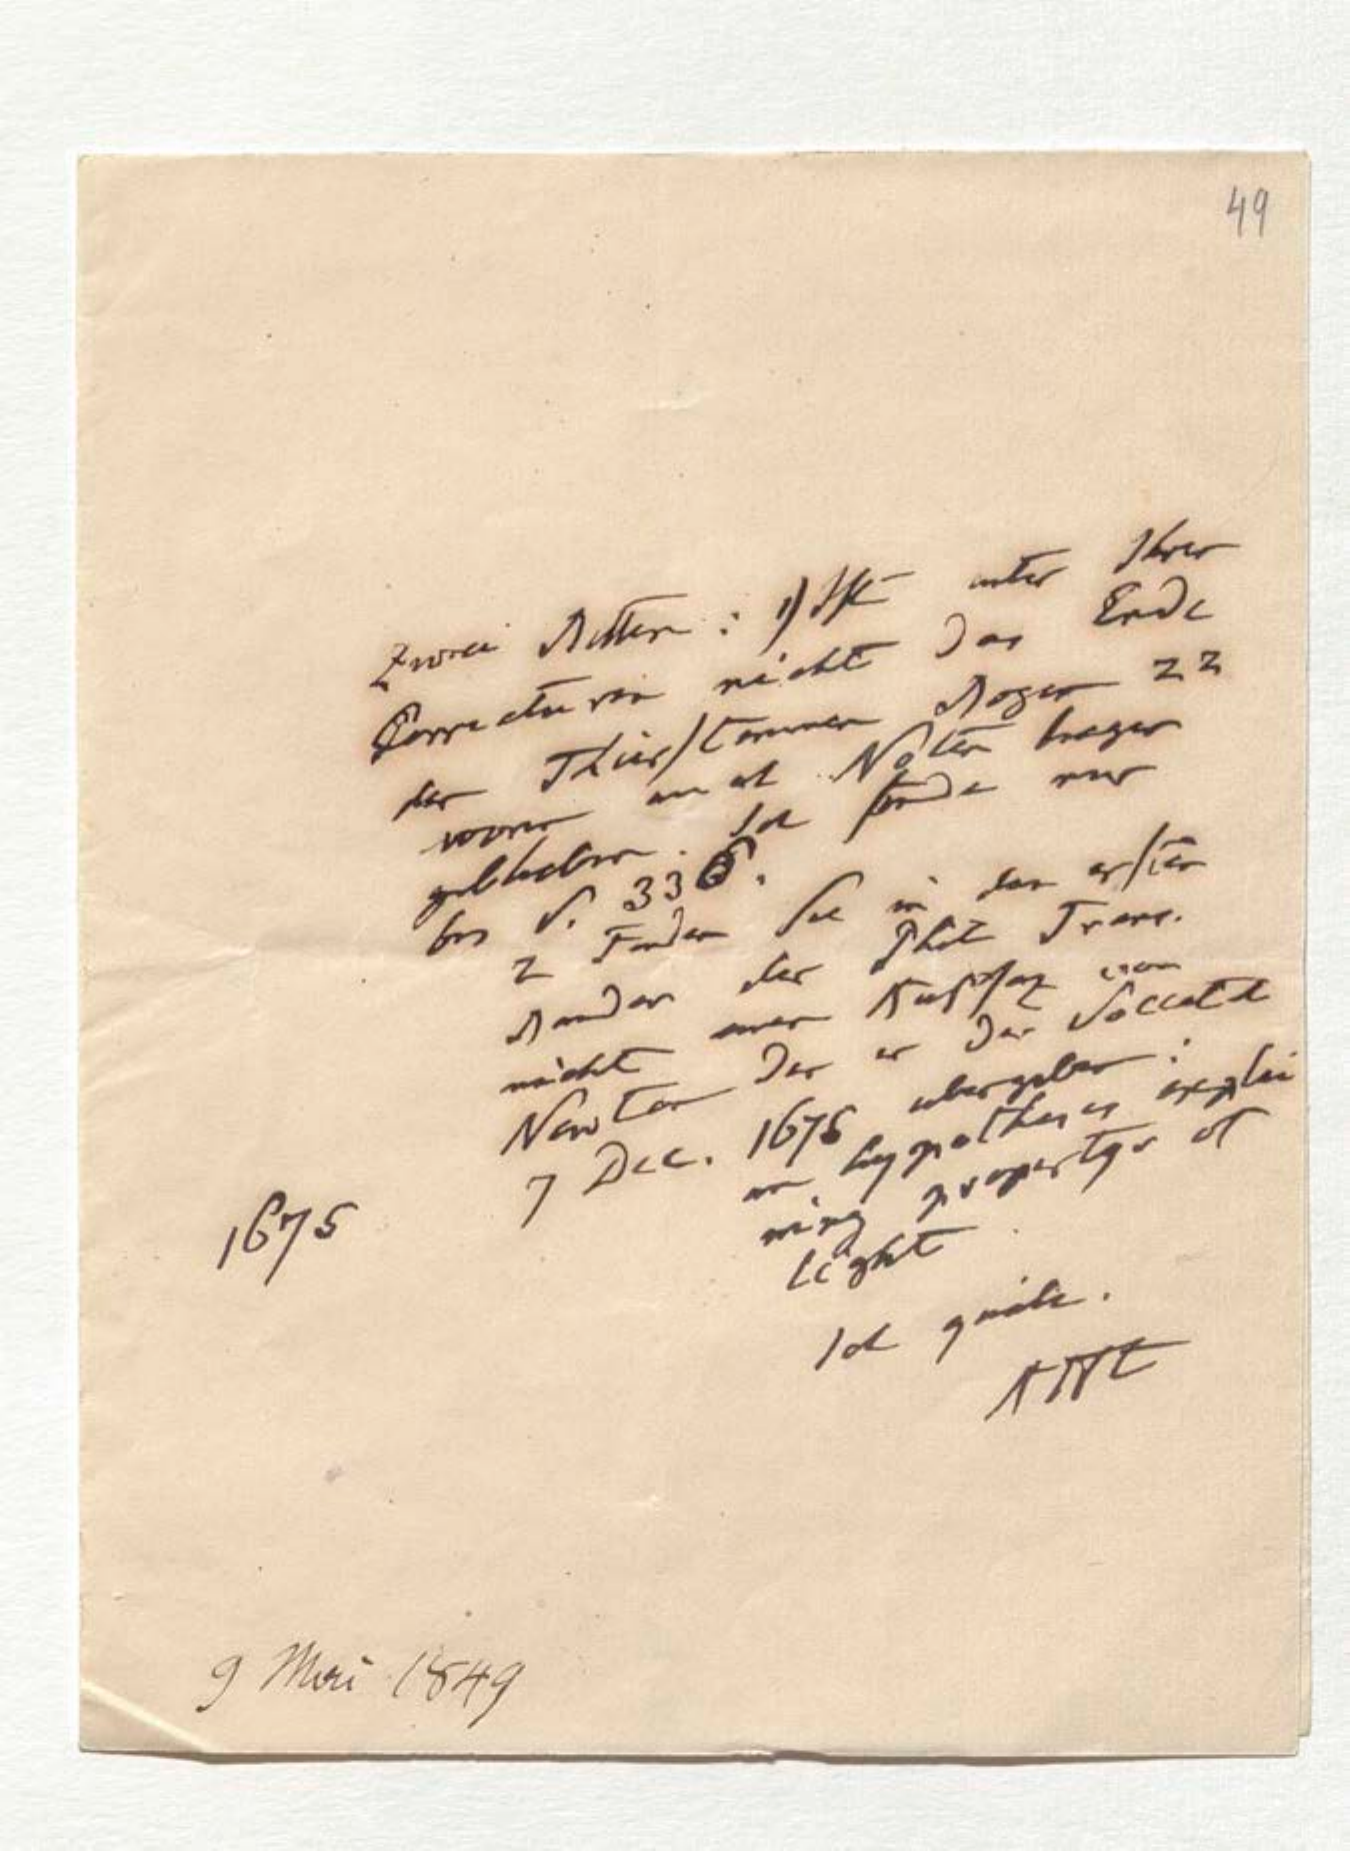 49
Zwei Bitten: 1) Ist unter Ihren
Correcturen nicht das Ende
der Bogen 22
worin auch Noten liegen
geblieben. Ich finde nur
bis S. 336.
2 Finden Sie in den ersten
Bänden der Phil Trans.
nicht einen Aufsaz von
Newton den er der Societät
7 Dec. 1675 übergeben:
an hypothesis explai
ning propertys of
light
1675
Ich quäle.
AHt
9 Mai 1849